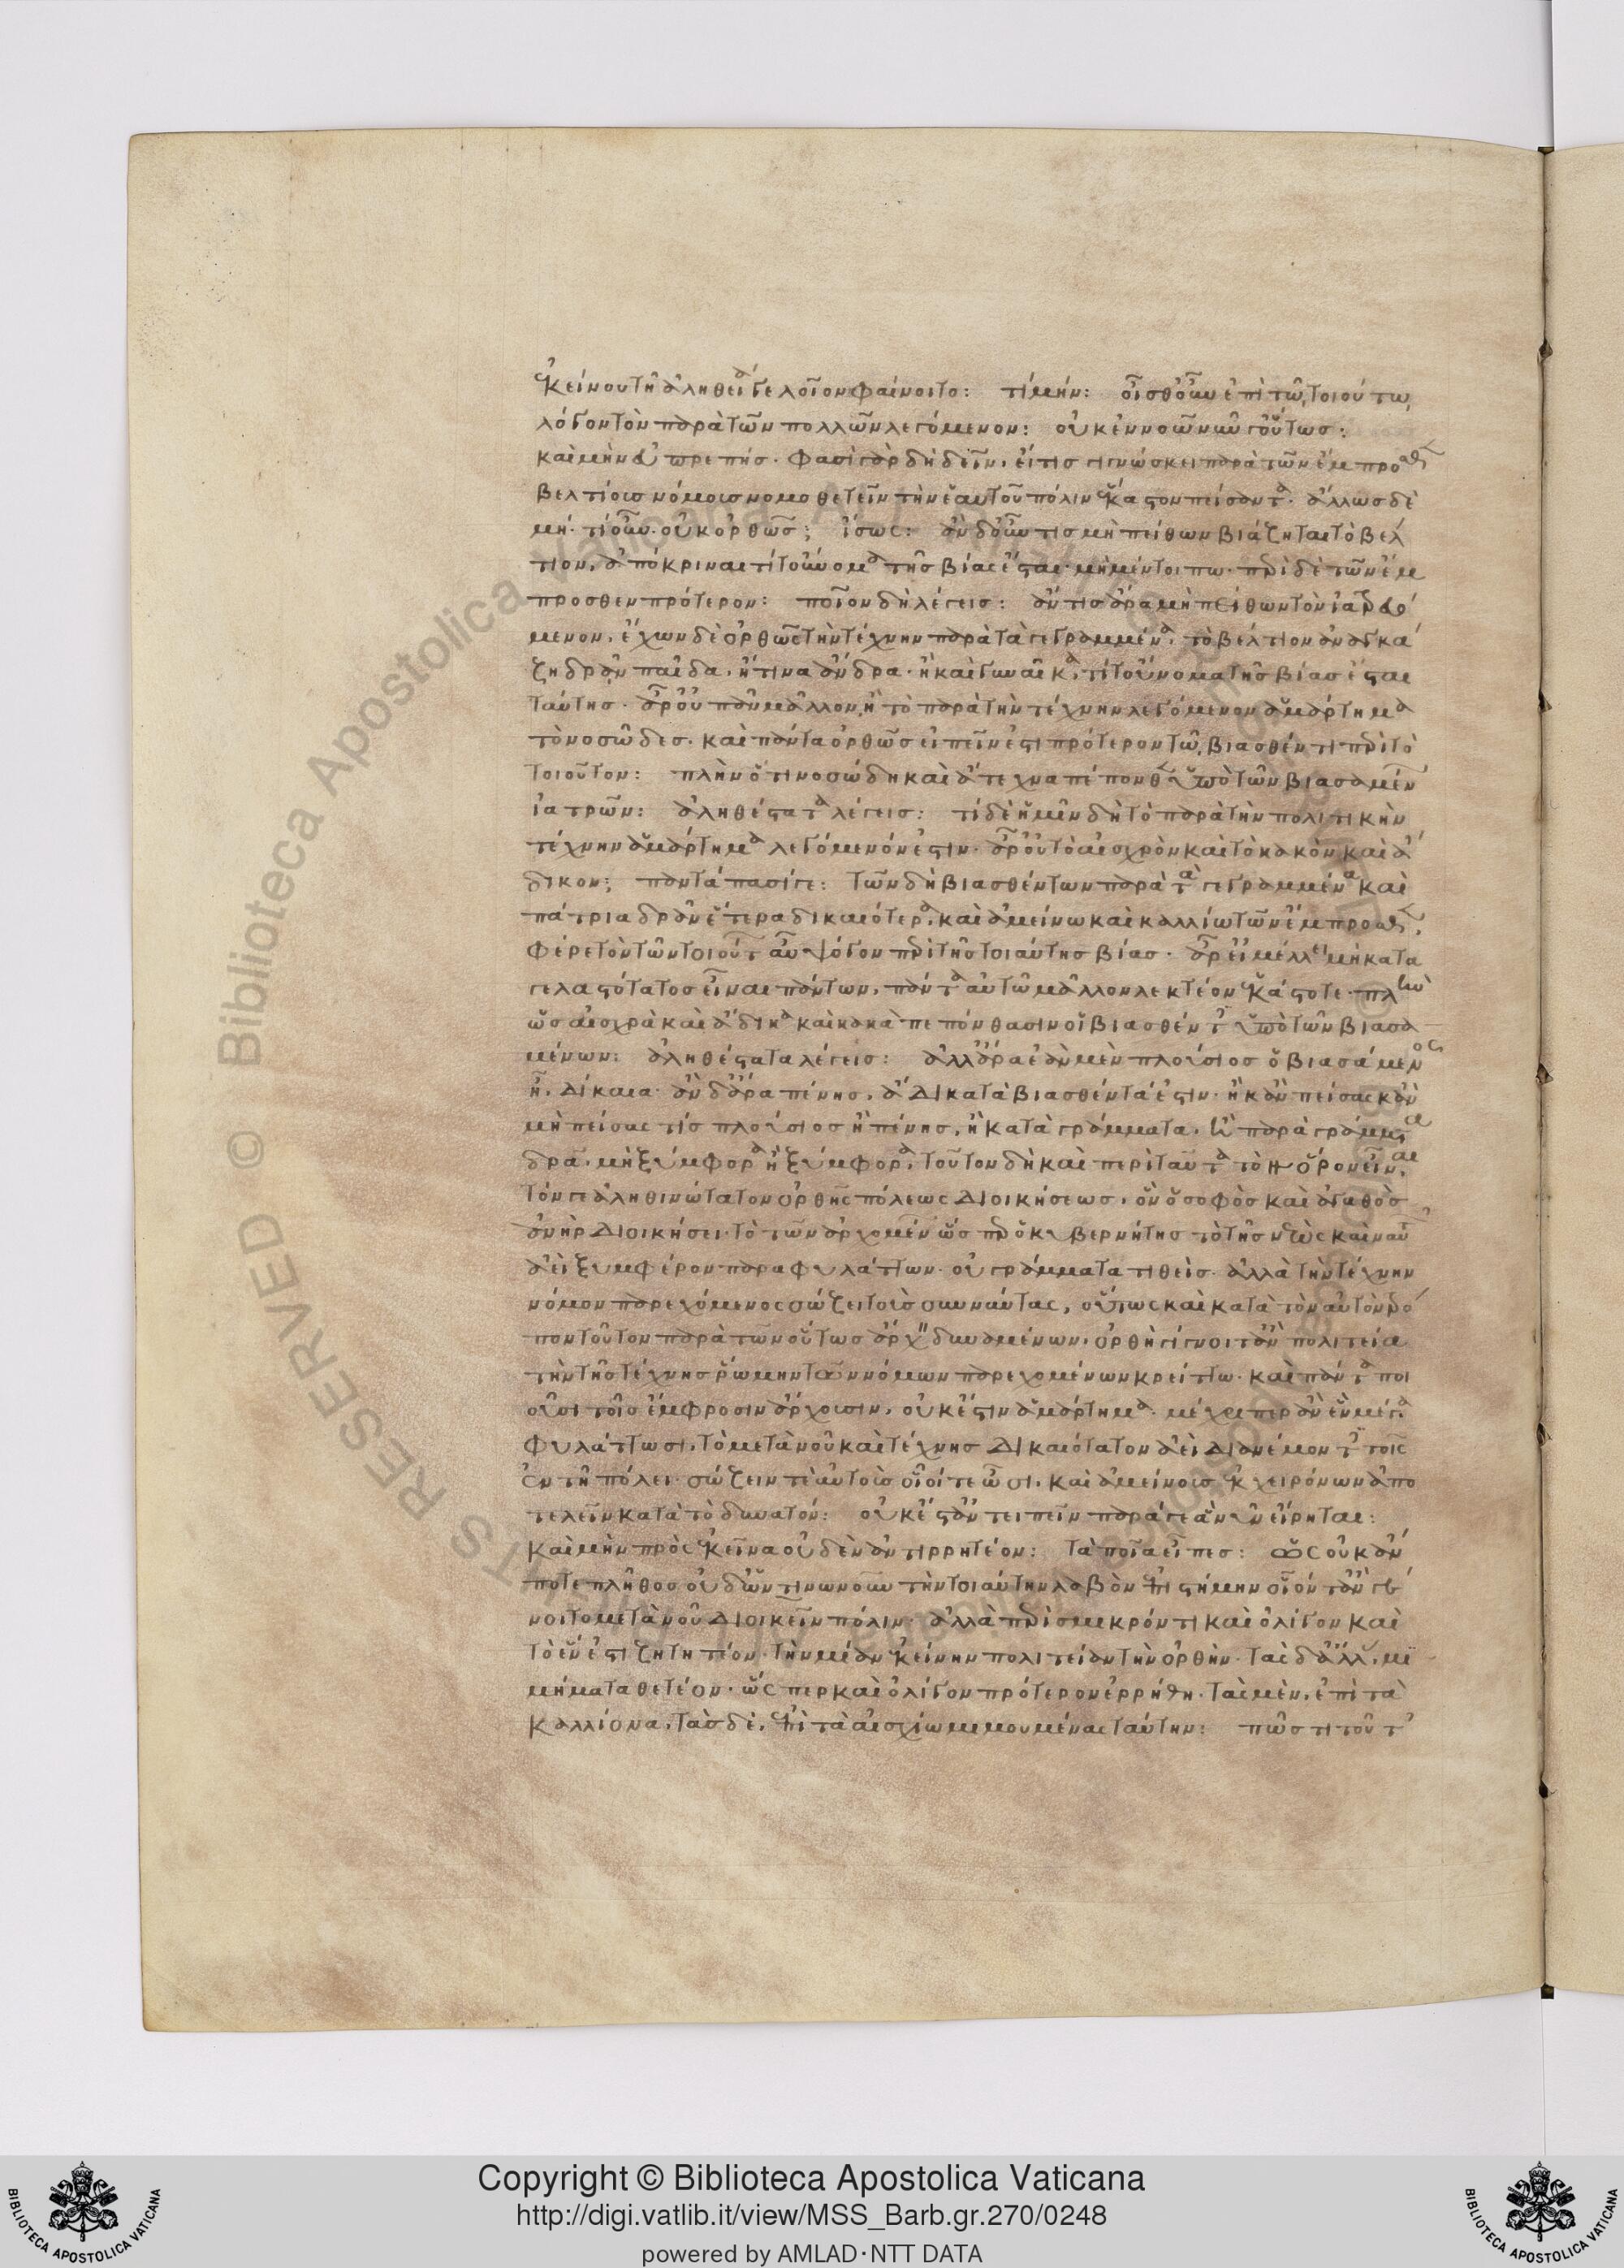 ἐκείνου τῇ ἀληθείᾳ γελοῖον φαίνοιτο: τί μήν: οἶσθ᾽ οὖν ἐπὶ τῷ τοιούτῳ
λόγον τὸν παρὰ τῶν πολλῶν λεγόμενον: οὐκ ἐννοῶ νῦν γ᾽ οὕτως:
καὶ μὴν εὐπρεπής. φασὶ γὰρ δὴ δεῖν, εἴ τις γιγνώσκει παρὰ τῶν ἔμπροσθεν
βελτίοις νόμοις νομοθετεῖν τὴν ἑαυτοῦ πόλιν ἕκαστον πείσαντα. ἄλλως δὲ
μή. τί οὖν. οὐκ ὀρθῶς; ἴσως: ἂν δ᾽ οὖν τις μὴ πείθων βιάζηται τὸ βέλ
τιον, ἀπόκριναι τί τοὔνομα τῆς βίας ἔσται. μὴ μέντοι πω. περὶ δὲ τῶν ἔμ
προσθεν πρότερον: ποῖον δὴ λέγεις: ἄν τις ἄρα μὴ πείθων τὸν ἰατρευό
μενον, ἔχων δὲ ὀρθῶς τὴν τέχνην παρὰ τὰ γεγραμμένα, τὸ βέλτιον ἀναγκά
ζῃ δρᾶν παῖδα, ἤ τινα ἄνδρα. ἢ καὶ γυναῖκα, τί τοὔνομα τῆς βίας ἔσται
ταύτης. ἆρ᾽ οὐ πᾶν μᾶλλον, ἢ τὸ παρὰ τὴν τέχνην λεγόμενον ἁμάρτημα
τὸ νοσῶδες. καὶ πάντα ὀρθῶς εἰπεῖν ἔστι πρότερον τῷ βιασθέντι περὶ τὸ
τοιοῦτον: πλὴν ὅτι νοσώδη καὶ ἄτεχνα πέπονθεν ὑπὸ τῶν βιασαμένων
ἰατρῶν: ἀληθέστατα λέγεις: τί δὲ ἡμῖν δὴ τὸ παρὰ τὴν πολιτικὴν
τέχνην ἁμάρτημα λεγόμενόν ἐστιν. ἆρ᾽ οὐ τὸ αἰσχρὸν καὶ τὸ κακὸν καὶ ἄ
δικον; παντάπασί γε: τῶν δὴ βιασθέντων παρὰ τὰ γεγραμμένα καὶ
πάτρια δρᾶν ἕτερα δικαιότερα, καὶ ἀμείνω καὶ καλλίω τῶν ἔμπροσθεν,
φέρε τὸν τῶν τοιούτων αὖ ψόγον περὶ τῆς τοιαύτης βίας. ἆρ᾽ εἰ μέλλει μὴ κατα
γελαστότατος εἶναι πάντων, πάντα αὐτῷ μᾶλλον λεκτέον ἑκάστοτε. πλὴν
ὡς αἰσχρὰ καὶ ἄδικα καὶ κακὰ πεπόνθασιν οἱ βιασθέντες ὑπὸ τῶν βιασα
μένων: ἀληθέστατα λέγεις: ἀλλ᾽ ἄρα ἐὰν μὲν πλούσιος ὁ βιασάμενος
ᾖ, δίκαια. ἂν δ᾽ ἄρα πένης, ἄδικα τὰ βιασθέντα ἐστιν. ἢ κἂν πείσας κἂν
μὴ πείσας τίς πλούσιος ἢ πένης, ἢ κατὰ γράμματα, ἢ παρὰ γράμματα
δρᾷ, μὴ ξύμφορα ἢ ξύμφορα, τοῦτον δὴ καὶ περὶ ταῦτα τὸν ὅρον εἶναι,
τόν γε ἀληθινώτατον ὀρθῆς πόλεως διοικήσεως, ὃν ὁ σοφὸς καὶ ἀγαθὸς
ἀνὴρ διοικήσει. τὸ τῶν ἀρχομένων ὥσπερ ὁ κυβερνήτης τὸ τῆς νεὼς καὶ ναυτῶν
ἀεὶ ξυμφέρον παραφυλάττων. οὐ γράμματα τιθεὶς. ἀλλὰ τὴν τέχνην
νόμον παρεχόμενος σώζει τοὺς συνναύτας, οὕτως καὶ κατὰ τὸν αὐτὸν τρό
πον τοῦτον παρὰ τῶν οὕτως ἄρχειν δυναμένων, ὀρθὴ γίγνοιτ᾽ ἂν πολιτεία
τὴν τῆς τέχνης ῥώμην τῶν νόμων παρεχομένων κρείττω. καὶ πάντα ποι
οῦσι τοῖς ἔμφροσιν ἄρχουσιν, οὐκ ἔστιν ἁμάρτημα. μέχρι περ ἂν ἓν μέγα
φυλάττωσι, τὸ μετὰ νοῦ καὶ τέχνης δικαιότατον ἀεὶ διανέμοντες τοῖς
ἐν τῇ πόλει. σώζειν τὲ αὐτοὺς οἷοί τε ὦσι, καὶ ἀμείνους ἐκ χειρόνων ἀπο
τελεῖν κατὰ τὸ δυνατόν: οὐκ ἔστ᾽ ἀντειπεῖν παρά γε ἃ νῦν εἴρηται:
καὶ μὴν πρὸς ἐκεῖνα οὐδὲν ἀντιρρητέον: τὰ ποῖα εἶπες: ὡς οὐκ ἄν
ποτε πλῆθος οὐδ᾽ ὧντινωνοῦν τὴν τοιαύτην λαβὸν ἐπιστήμην οἷόν τ᾽ ἂν γέ
νοιτο μετὰ νοῦ διοικεῖν πόλιν. ἀλλὰ περὶ σμικρόν τι καὶ ὀλίγον καὶ
τὸ ἕν ἐστι ζητητέον. τὴν μίαν ἐκείνην πολιτείαν τὴν ὀρθήν. τὰς δ᾽ ἄλλας, μι
μήματα θετέον. ὥσπερ καὶ ὀλίγον πρότερον ἐρρήθη. τὰς μὲν, ἐπὶ τὰ
καλλίονα, τὰς δὲ, ἐπὶ τὰ αἰσχίω μιμουμένας ταύτην: πῶς τί τοῦτ᾽
Copyright © Biblioteca Apostolica Vaticana
http://digi.vatlib.it/view/MSS_Barb.gr.270/0248
powered by AMLAD·NTT DATA